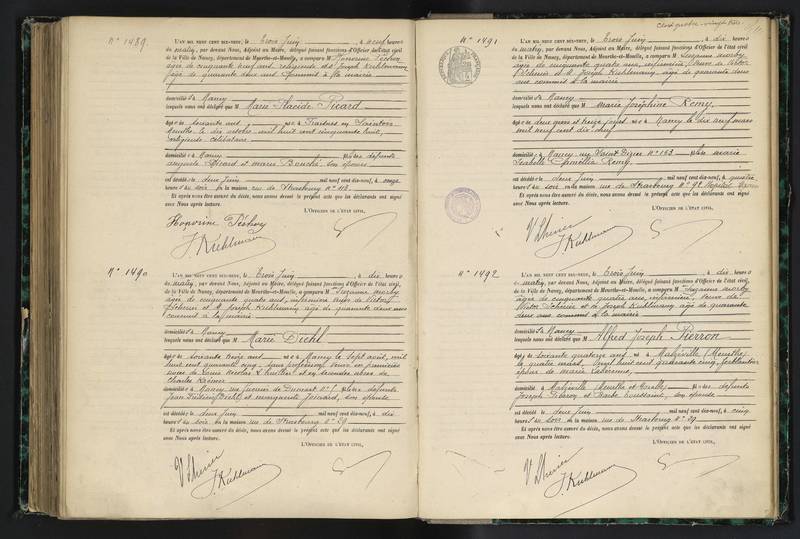 N° 1489.
L'AN MIL NEUF CENT DIX-NEUF, le Trois Juin, à neuf heures
du matin, par devant Nous, Adjoint au Maire, délégué faisant fonctions d'Officier de l'état civil
de la Ville de Nancy, département de Meurthe-et-Moselle, a comparu M Honorine Péchoy
âgée de cinquante neuf ans, religieuse et Joseph Kuhlmann
âgé de quarante deux ans commis à la mairie
domicilié s à Nancy
lesquels nous ont déclaré que M Marie Placide Picard
âgé e de soixante ans, né e à
Meurthe le dix octobre mil huit cent cinquante huit,
religieuse célibataire
domicilié e à Nancy fille de défunts
Auguste Picard et Marie Bouché, son épouse
est décédé e le deux Juin mil neuf cent dix-neuf, à onze
heures du soir en la maison rue de Strasbourg n° 118.
Et après nous être assuré du décès, nous avons dressé le présent acte que les déclarants ont signé
avec Nous après lecture.
L'OFFICIER DE L'ÉTAT CIVIL,
Honorine Péchoy
J. Kuhlmann
N° 1490
L'AN MIL NEUF CENT DIX-NEUF, le Trois Juin, à dix heures
du matin, par devant Nous, Adjoint au Maire, délégué faisant fonctions d'Officier de l'état civil,
de la Ville de Nancy, département de Meurthe-et-Moselle, a comparu M Suzanne
âgée de cinquante quatre ans, infirmière veuve de Victor
Lhenier et M Joseph Kuhlmann âgé de quarante deux ans
commis à la mairie
domicilié s à Nancy
lesquels nous ont déclaré que M Marie Diehl
âgé e de soixante treize ans né e à Nancy le sept août, mil
huit cent quarante cinq, sans profession, veuve en premières
noces de Louis Nicolas et en secondes noces de
Charles
domicilié e à Nancy fille de défunts
Jean Diehl et Marguerite son épouse
est décédé e le deux Juin mil neuf cent dix-neuf, à dix
heures du soir en la maison rue de Strasbourg n° 29
Et après nous être assuré du décès, nous avons dressé le présent acte que les déclarants ont signé
avec Nous après lecture.
L'OFFICIER DE L'ÉTAT CIVIL,
V Lhenier
J. Kuhlmann
N° 1491
L'AN MIL NEUF CENT DIX-NEUF, le Trois Juin, à dix heures
du matin, par devant Nous, Adjoint au Maire, délégué faisant fonctions d'Officier de l'état civil
de la Ville de Nancy, département de Meurthe-et-Moselle, a comparu M Suzanne
âgée de cinquante quatre ans, infirmière, veuve de Victor
Lhenier et M Joseph Kuhlmann, âgé de quarante deux
ans commis à la mairie
domicilié s à Nancy
lesquels nous ont déclaré que M Marie Joséphine Remy
âgé e de deux mois et treize jours né e à Nancy le dix neuf mars
mil neuf cent dix neuf
domicilié e à Nancy rue Saint Dizier n° 153 fille de Marie
Isabelle Remy.
est décédé e le deux Juin mil neuf cent dix-neuf, à quatre
heures du soir en la maison rue de Strasbourg n° 92 Hôpital
Et après nous être assuré du décès, nous avons dressé le présent acte que les déclarants ont signé
avec Nous après lecture.
L'OFFICIER DE L'ÉTAT CIVIL,
V Lhenier
J. Kuhlmann
N° 1492
L'AN MIL NEUF CENT DIX-NEUF, le Trois Juin, à dix heures
du matin, par devant Nous, Adjoint au Maire, délégué faisant fonctions d'Officier de l'état civil,
de la Ville de Nancy, département de Meurthe-et-Moselle, a comparu M Suzanne
âgée de cinquante quatre ans, infirmière, veuve de
Victor Lhenier et M Joseph Kuhlmann âgé de quarante
deux ans commis à la mairie
domicilié s à Nancy
lesquels nous ont déclaré que M Alfred Joseph Pierron
âgé de soixante quatorze ans né à Malzéville (Meurthe)
le quatre mars, mil huit cent quarante cinq, ferblantier
époux de Marie
domicilié à Malzéville (Meurthe et Moselle) fils de défunts
Joseph Pierron et Barbe Toussaint, son épouse
est décédé le deux Juin mil neuf cent dix-neuf, à cinq
heures du soir en la maison rue de Strasbourg n° 29
Et après nous être assuré du décès, nous avons dressé le présent acte que les déclarants ont signé
avec Nous après lecture.
L'OFFICIER DE L'ÉTAT CIVIL,
V Lhenier
J. Kuhlmann